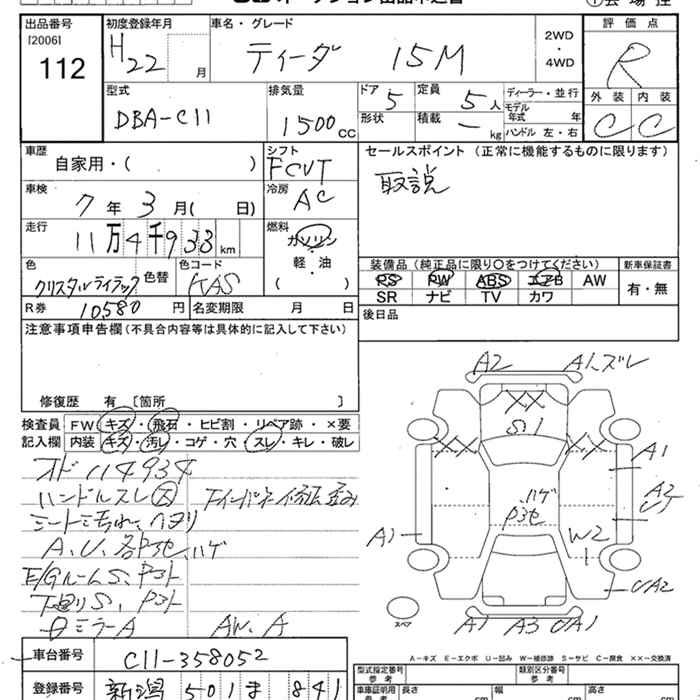 出品番号 初度登録年月 車名・グレード 評価点
[2006] 112 H22 月 ティーダ 15M 2WD・4WD R
型式 排気量 ドア 定員 ディーラー・並行 外装 内装
DBA-C11 1500 cc 5 5 人 モデル年式 年 C C
形状 積載 － kg ハンドル 左・右
車歴 シフト セールスポイント (正常に機能するものに限ります)
自家用・( ) FCVT 取説
車検 冷房
7 年 3 月 ( 日) AC
走行 燃料
11 万 4 千 9 3 3 km ガソリン・軽・油 ( )
色 色替 色コード 装備品 (純正品に限り○をつけてください) 新車保証書
クリスタルライラック KAS PS PW ABS エアB AW 有・無
SR ナビ TV カワ
R券 10580 円 名変期限 月 日 後日品
注意事項申告欄 (不具合内容等は具体的に記入して下さい)
修復歴 有 [箇所 ]
検査員 FW キズ・飛石・ヒビ割・リペア跡・×要
記入欄 内装 キズ・汚レ・コゲ・穴・スレ・キレ・破レ
オド 114934
ハンドルスレ
シート汚れ、ヘタリ
A、U、各
下廻りS、
ミラーA AW、A
A2 A1、ズレ
XX
S1
XX XX
A1
A2
ハゲ
A1
W2
UA2
A1 A3 UA1
スペア
A－キズ E－エクボ U－凹み W－補修跡 S－サビ C－腐食 ××－交換済
車台番号 C11-358052 型式指定番号 参考 類別区分番号 参考
登録番号 新潟 501 ま 841 車庫証明用 参考 長さ cm 幅 cm 高さ cm